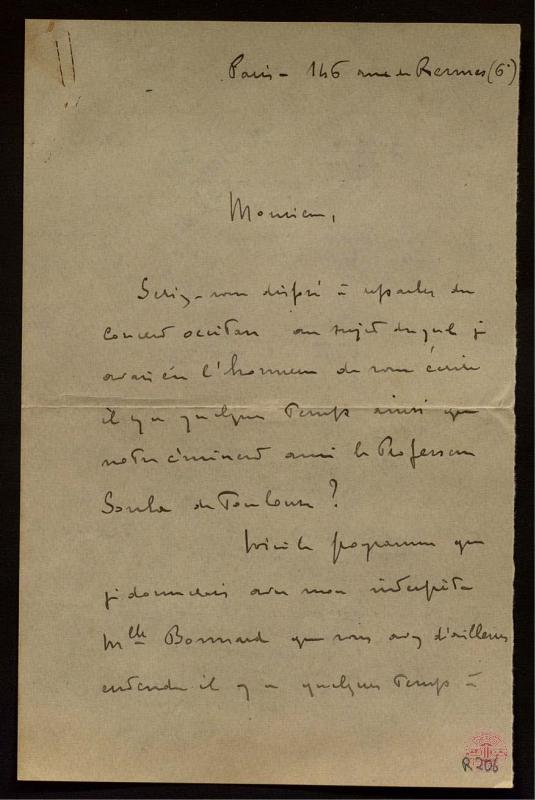 Paris - 146 rue de Rennes (6e)
Monsieur,
Seriez-vous disposé à reparler du
concert occitan au sujet duquel j'
avais eu l'honneur de vous écrire
il y a quelque temps ainsi que
notre éminent ami le Professeur
Soula de Toulouse ?
Voici le programme que
je donnerais avec mon interprète
Mlle Bonnard que vous avez d'ailleurs
entendue il y a quelques temps à
R 206